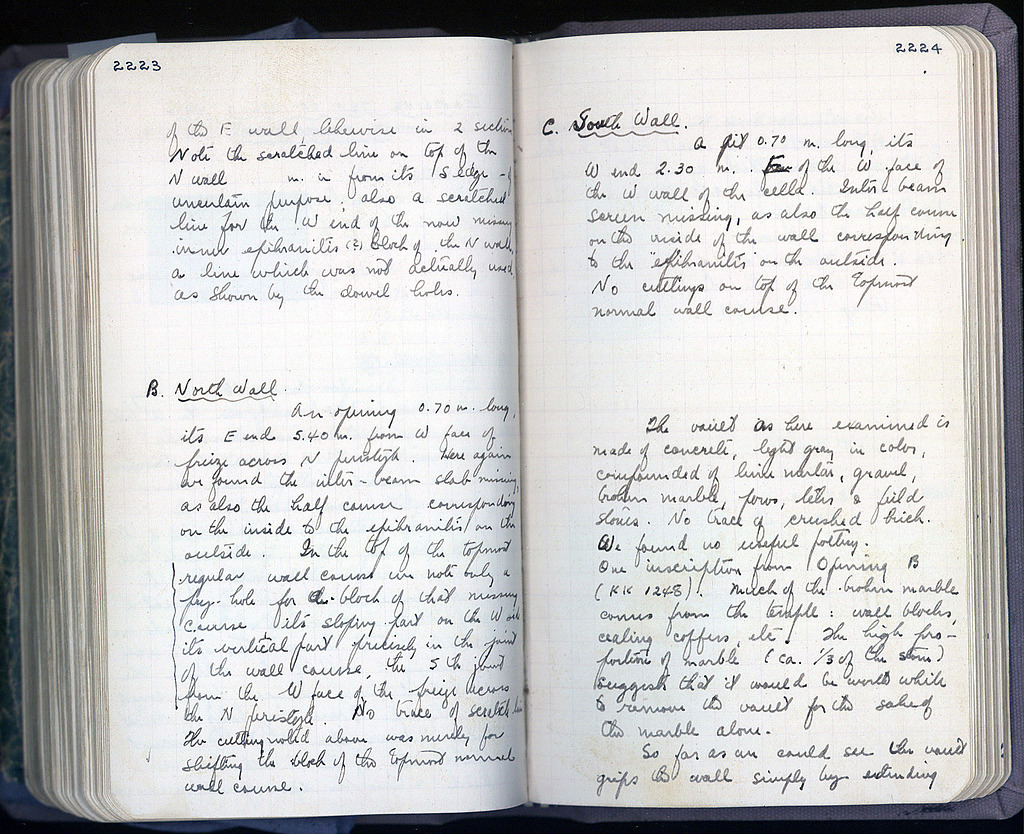 2223
of the E wall likewise in 2 sections
Note the scratched line on top of the
N wall m. in from its S edge - of
uncertain purpose. also a scratched
line for the W end of the now missing
inner epikranitis (?) block of the N wall,
a line which was not actually used
as shown by the dowel holes.
B. North Wall.
An opening 0.70 m. long,
its E end 5.40 m. from W face of
frieze across N peristyle. Here again
we found the inter-beam slab missing,
as also the half course corresponding
on the inside to the epikranitis on the
outside. In the top of the topmost
regular wall course we note only a
pry-hole for the block of that missing
course its sloping part on the W side
its vertical part precisely in the joint
of the wall course, the 5th joint
from the W face of the frieze across
the N peristyle. No trace of scratch line
The cutting noted above was merely for
shifting the block of the topmost normal
wall course.
2224
C. South Wall.
A pit 0.70 m. long, its
W end 2.30 m. of the W face of
the W wall of the cella. Inter-beam
screen missing, as also the half course
on the inside of the wall corresponding
to the "epikranitis" on the outside.
No cuttings on top of the topmost
normal wall course.
The vault as here examined is
made of concrete, light gray in color,
compounded of lime mortar, gravel,
broken marble, poros, tiles & field
stones. No trace of crushed brick.
We found no useful pottery.
One inscription from Opening B
(KK 1248). Much of the broken marble
comes from the temple: wall blocks,
ceiling coffers, etc. The high pro-
portion of marble (ca. 1/3 of the stone)
suggests that it would be worth while
to remove the vault for the sake of
the marble alone.
So far as we could see the vault
grips the wall simply by extending